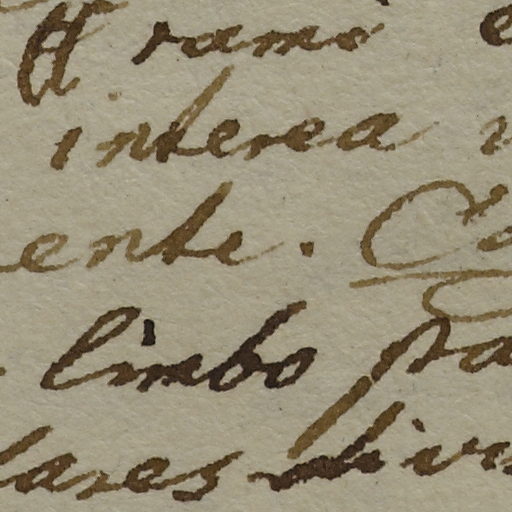 ramo
interea
ente. Co
limbo pa
lares divi